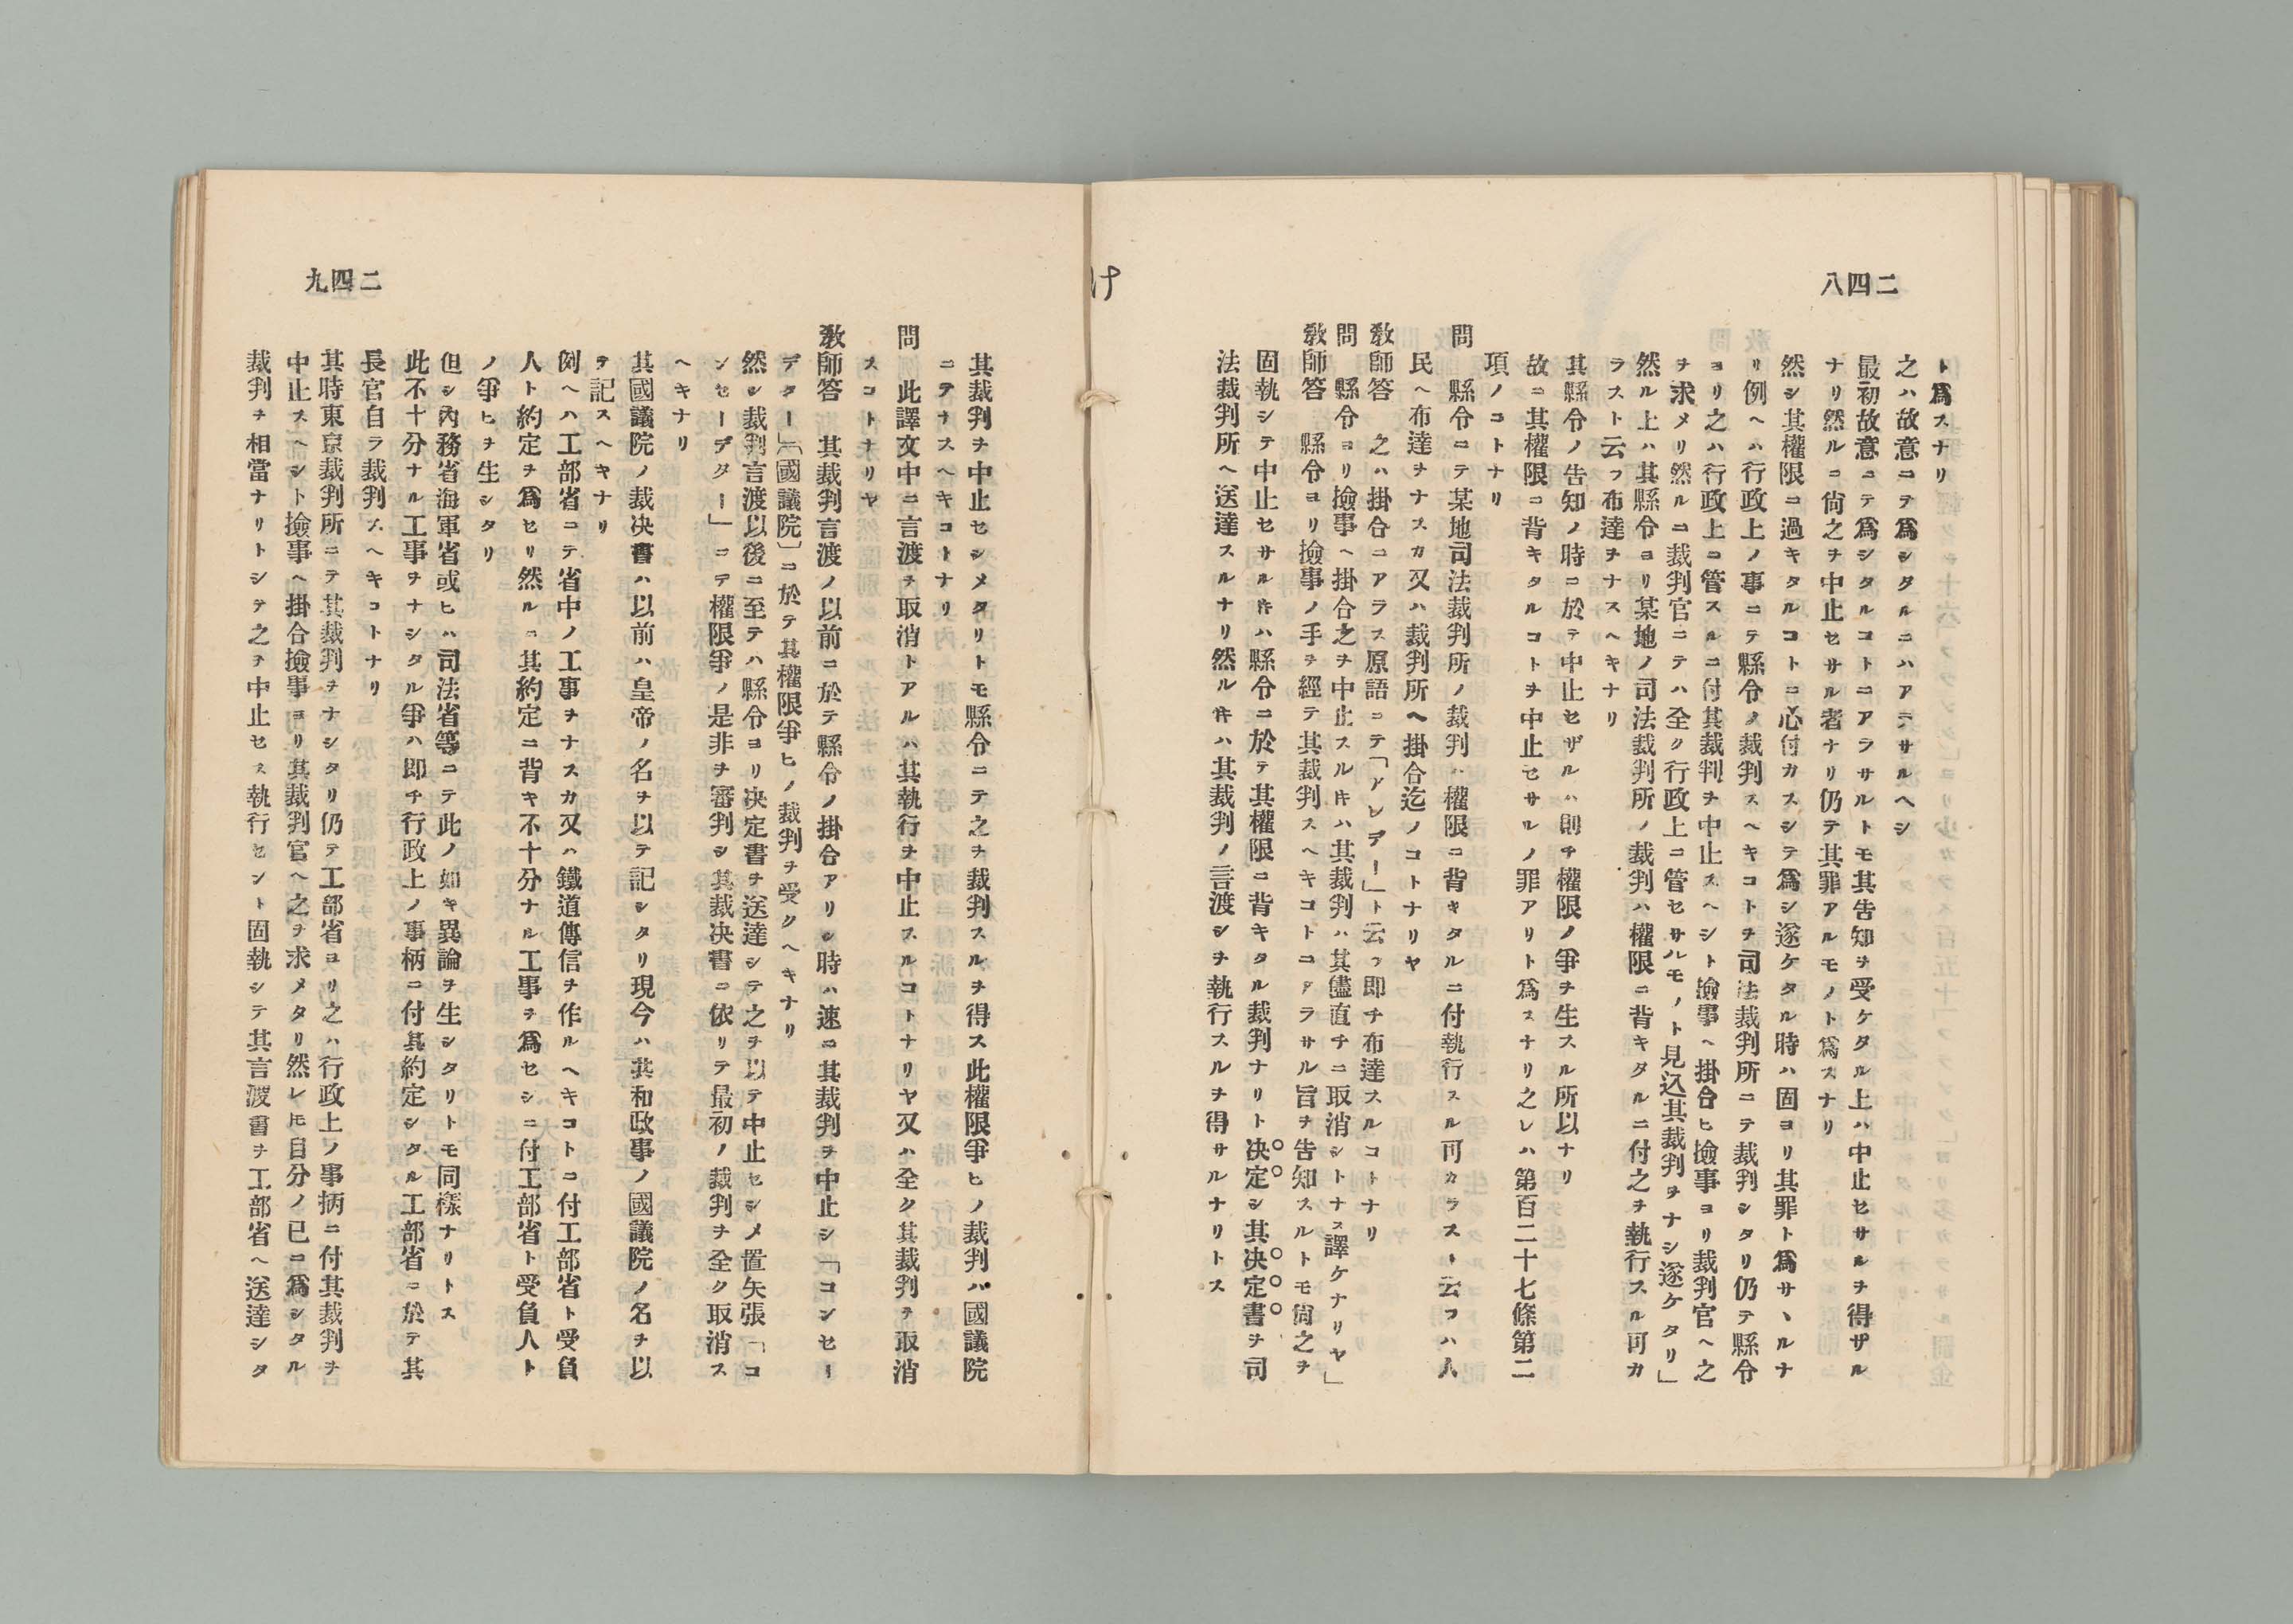 二四八
ト爲スナリ
之ハ故意ニテ爲シタルニハアラサルヘシ
最初故意ニテ爲シタルコトニアラサルトモ其告知ヲ受ケタル上ハ中止セサルヲ得ザル
ナリ然ルニ尙之ヲ中止セサル者ナリ仍テ其罪アルモノト爲スナリ
然シ其權限ニ過キタルコトニ心付カスシテ爲シ遂ケタル時ハ固ヨリ其罪ト爲サヽルナ
リ例ヘハ行政上ノ事ニテ縣令ノ裁判スヘキコトヲ司法裁判所ニテ裁判シタリ仍テ縣令
ヨリ之ハ行政上ニ管スルニ付其裁判ヲ中止スヘシト撿事ヘ掛合ヒ撿事ヨリ裁判官ヘ之
ヲ求メリ然ルニ裁判官ニテハ全ク行政上ニ管セサルモノト見込其裁判ヲナシ遂ケタリ」
然ル上ハ其縣令ヨリ某地ノ司法裁判所ノ裁判ハ權限ニ背キタルニ付之ヲ執行スル可カ
ラスト云フ布達ヲナスヘキナリ
其縣令ノ告知ノ時ニ於テ中止セザルハ則チ權限ノ爭ヲ生スル所以ナリ
故ニ其權限ニ背キタルコトヲ中止セサルノ罪アリト爲スナリ之レハ第百二十七條第二
項ノコトナリ
問　縣令ニテ某地司法裁判所ノ裁判ハ權限ニ背キタルニ付執行スル可カラスト云フハ人
民ヘ布達ヲナスカ又ハ裁判所ヘ掛合迄ノコトナリヤ
敎師答　之ハ掛合ニアラス原語ニテ「アレデー」ト云フ即チ布達スルコトナリ
問　縣令ヨリ撿事ヘ掛合之ヲ中止スルキハ其裁判ハ其儘直チニ取消シトナス譯ケナリヤ」
敎師答　縣令ヨリ撿事ノ手ヲ經テ其裁判スヘキコトニアラサル旨ヲ告知スルトモ尙之ヲ
固執シテ中止セサルキハ縣令ニ於テ其權限ニ背キタル裁判ナリト决定シ其决定書ヲ司
法裁判所ヘ送達スルナリ然ルキハ其裁判ノ言渡シヲ執行スルヲ得サルナリトス
け
二四九
其裁判ヲ中止セシメタリトモ縣令ニテ之ヲ裁判スルヲ得ス此權限爭ヒノ裁判ハ國議院
ニテナスヘキコトナリ
問　此譯文中ニ言渡ヲ取消トアルハ其執行ヲ中止スルコトナリヤ又ハ全ク其裁判ヲ取消
スコトナリヤ
敎師答　其裁判言渡ノ以前ニ於テ縣令ノ掛合アリシ時ハ速ニ其裁判ヲ中止シ「コンセー
デター」〔國議院〕ニ於テ其權限爭ヒノ裁判ヲ受クヘキナリ
然シ裁判言渡以後ニ至テハ縣令ヨリ决定書ヲ送達シテ之ヲ以テ中止セシメ置矢張「コ
ンセーデター」ニテ權限爭ノ是非ヲ審判シ其裁决書ニ依リテ最初ノ裁判ヲ全ク取消ス
ヘキナリ
其國議院ノ裁决書ハ以前ハ皇帝ノ名ヲ以テ記シタリ現今ハ共和政事ノ國議院ノ名ヲ以
テ記スヘキナリ
例ヘハ工部省ニテ省中ノ工事ヲナスカ又ハ鐵道傳信ヲ作ルヘキコトニ付工部省ト受負
人ト約定ヲ爲セリ然ルニ其約定ニ背キ不十分ナル工事ヲ爲セシニ付工部省ト受負人ト
ノ爭ヒヲ生シタリ
但シ內務省海軍省或ヒハ司法省等ニテ此ノ如キ異論ヲ生シタリトモ同樣ナリトス
此不十分ナル工事ヲナシタル爭ハ即チ行政上ノ事柄ニ付其約定シタル工部省ニ於テ其
長官自ラ裁判スヘキコトナリ
其時東京裁判所ニテ其裁判ヲナシタリ仍テ工部省ヨリ之ハ行政上ノ事柄ニ付其裁判ヲ
中止スヘシト撿事ヘ掛合撿事ヨリ其裁判官ヘ之ヲ求メタリ然レトモ自分ノ已ニ爲シタル
裁判ヲ相當ナリトシテ之ヲ中止セス執行セント固執シテ其言渡書ヲ工部省ヘ送達シタ